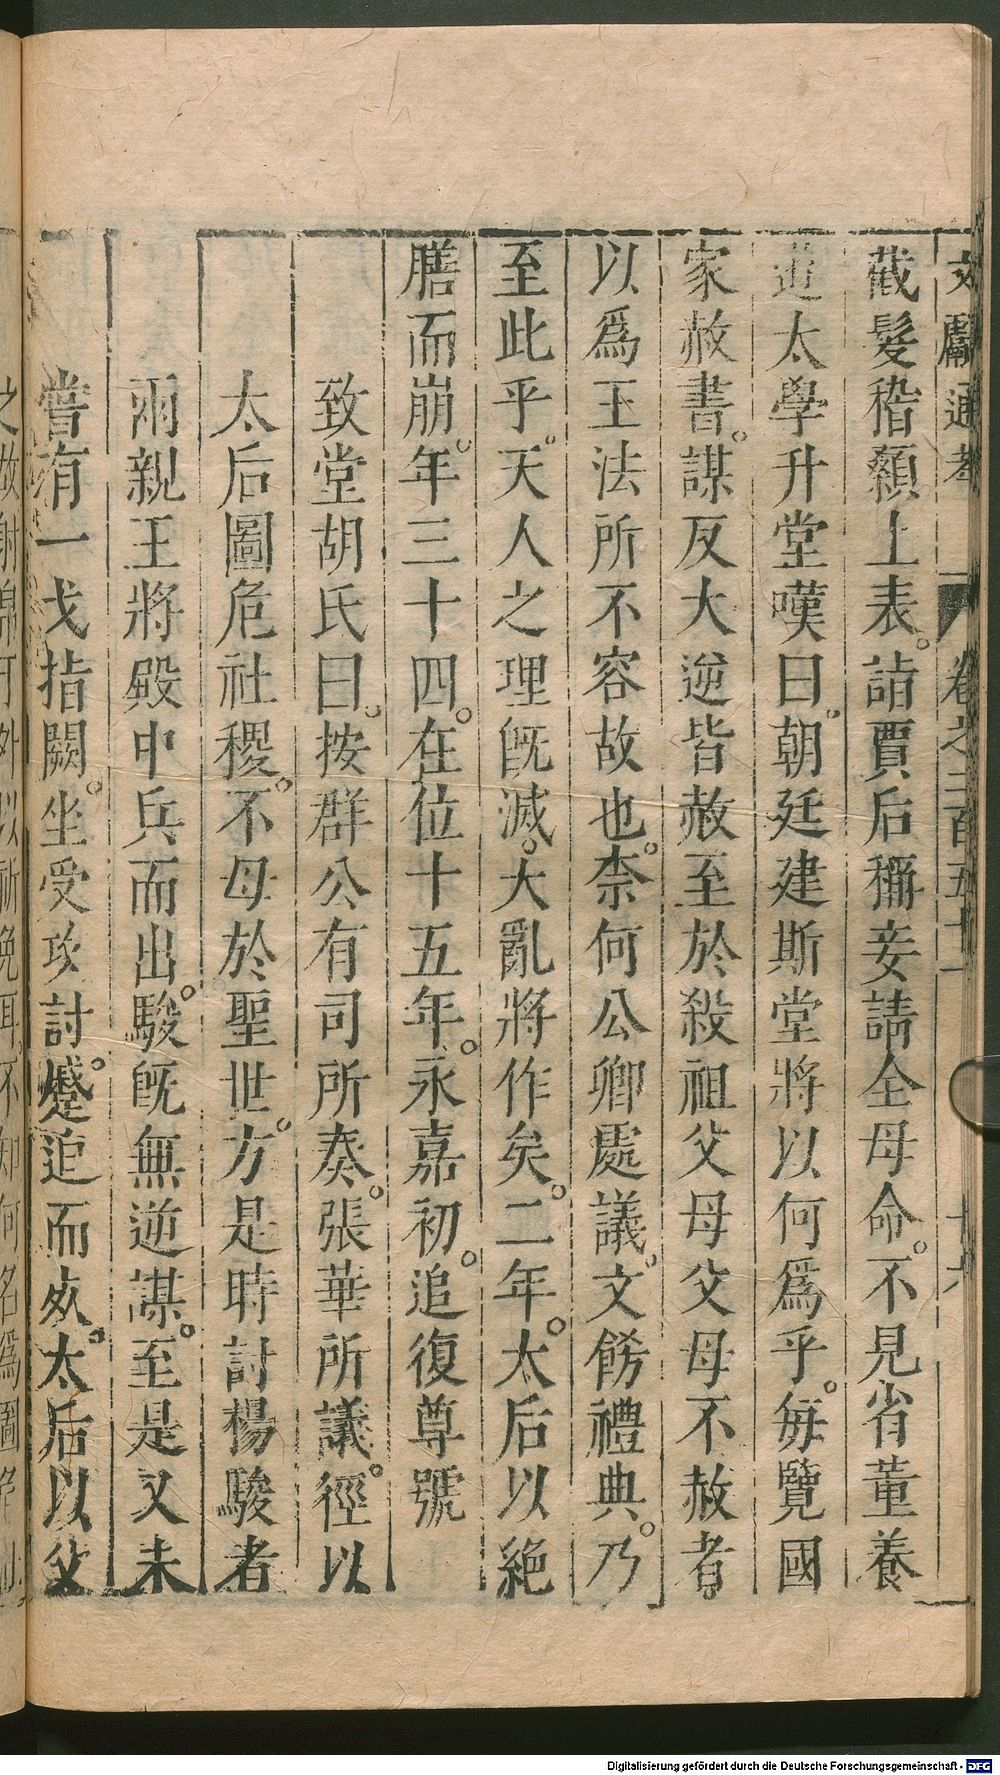 文獻通考
卷之二百五十一
十六
截髮稽顙上表。詣賈后稱妾請全母命。不見省董養
遊太學升堂嘆曰。朝廷建斯堂將以何爲乎。每覽國
家赦書。謀反大逆皆赦至於殺祖父母父母不赦者。
以爲王法所不容故也。柰何公卿處議。文餝禮典。乃
至此乎。天人之理旣滅。大亂將作矣。二年。太后以絶
膳而崩。年三十四。在位十五年。永嘉初。追復尊號
致堂胡氏曰。按群公有司所奏。張華所議。徑以
太后圖危社稷。不母於聖世。方是時討楊駿者
兩親王將殿中兵而出。駿旣無逆謀。至是又未
嘗有一戈指闕。坐受攻討。蹙迫而死。太后以父
之故射帛於外以祈免耳不知何名爲圖危社
Digitalisierung gefördert durch die Deutsche Forschungsgemeinschaft - DFG